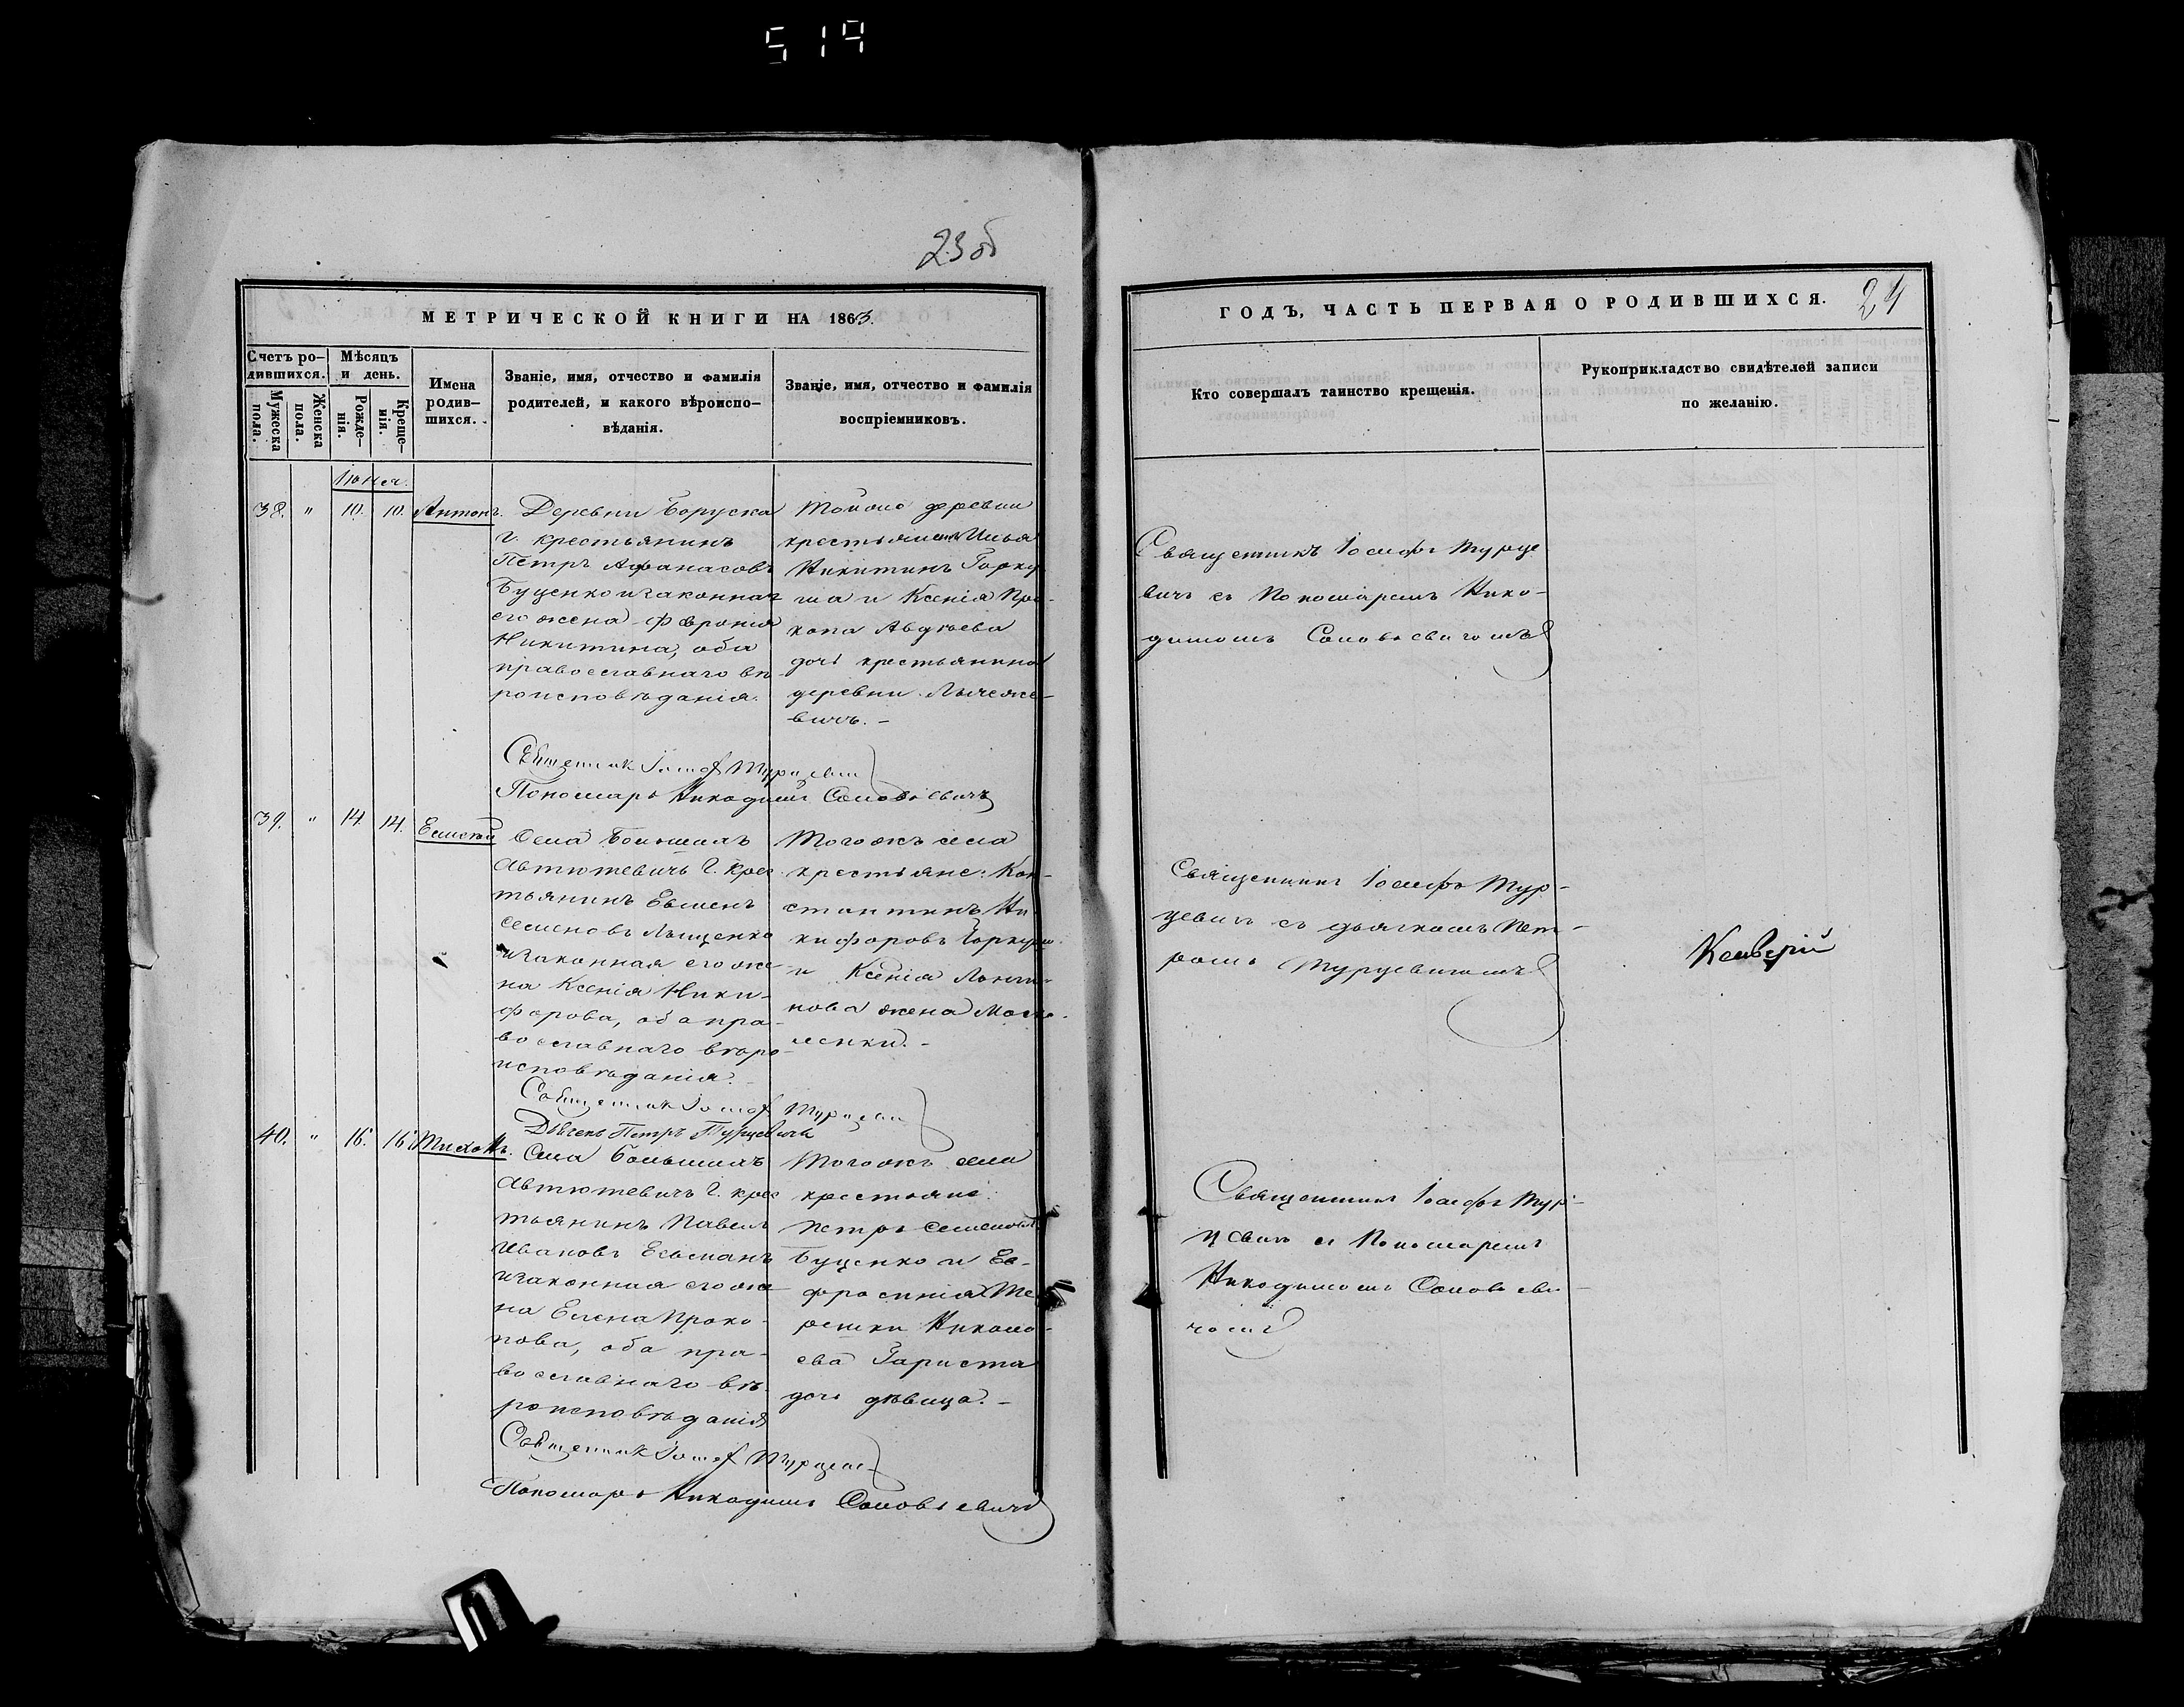 519
23 об
МЕТРИЧЕСКОЙ КНИГИ НА 1863.
Счетъ ро-
дившихся.
Мѣсяцъ
и день.
Мужеска
пола.
Женска
пола.
Рожде-
нія.
Креще-
нія.
Имена
родив-
шихся.
Званіе, имя, отчество и фамилія
родителей, и какого вѣроиспо-
вѣданія.
Званіе, имя, отчество и фамилія
воспріемниковъ.
Іюня.
38. " 10. 10. Антонъ.
Деревни Боруска
г. крестьянинъ
Петръ Афанасовъ
Буценко и законная
его жена Феврония
Никитина, оба
православнаго вѣ
роисповѣданія.
Тойже деревни
крестьянинъ Илья
Никитинъ Горку
ша и Ксенія Про-
копа Авдѣева
дочь крестьянина
деревни
вичъ. -
Священник Іосиф Турцевич
Пономарь Никодимъ Соловьевичъ
39. " 14. 14. Елисей
Села Большихъ
Автютевичъ г. крес
тьянинъ Евмен
Семеновъ Лыщенко
и законная его же
на Ксенія Ники-
форова, оба пра-
вославнаго вѣро-
исповѣданія.
Тогожъ села
крестьяне: Кон-
стантинъ Ни
кифоровъ Горкуша
и Ксенія Логи-
нова жена
Священник Іосиф Турцевич
Дьячекъ Петръ Турцевичъ
40. " 16. 16. Тихонъ.
Села Большихъ
Автютевичъ г. крес
тьянинъ Павелъ
Ивановъ Есьманъ
и законная его же
на Елена Проко-
пова, оба пра-
вославнаго вѣ-
роисповѣданія
Тогожъ села
крестьяне:
Петръ Семеновъ
Буценко и Ев-
фросинія Те
решки Николо-
ева Гариста
дочь дѣвица. -
Священник Іосиф Турцевич
Пономарь Никодимъ Соловьевичъ
ГОДЪ, ЧАСТЬ ПЕРВАЯ О РОДИВШИХСЯ.
24
Кто совершалъ таинство крещенія.
Рукоприкладство свидѣтелей записи
по желанію.
Священникъ Іосифъ Турце
вичъ съ Пономаремъ Нико-
димомъ Соловьевичомъ
Священникъ Іосифъ Тур-
цевичъ съ дьячкомъ Пет-
ромъ Турцевичомъ
Священникъ Іосифъ Тур-
цевичъ съ Пономаремъ
Никодимомъ Соловьеви-
чомъ